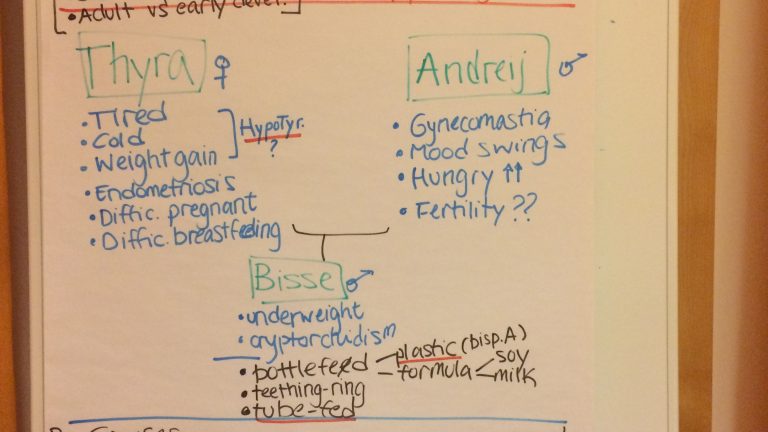 • Adult vs early devel.]
Thyra ♀
• Tired
• Cold
• Weight gain
HypoTyr.
?
• Endometriosis
• Diffic. pregnant
• Diffic. breastfeeding
Andreij ♂
• Gynecomastia
• Mood swings
• Hungry ↑↑
• Fertility ??
Bisse ♂
• underweight
• cryptorchidism
• bottlefeed
plastic (bisp.A)
formula
soy
milk
• teething-ring
• tube-fed